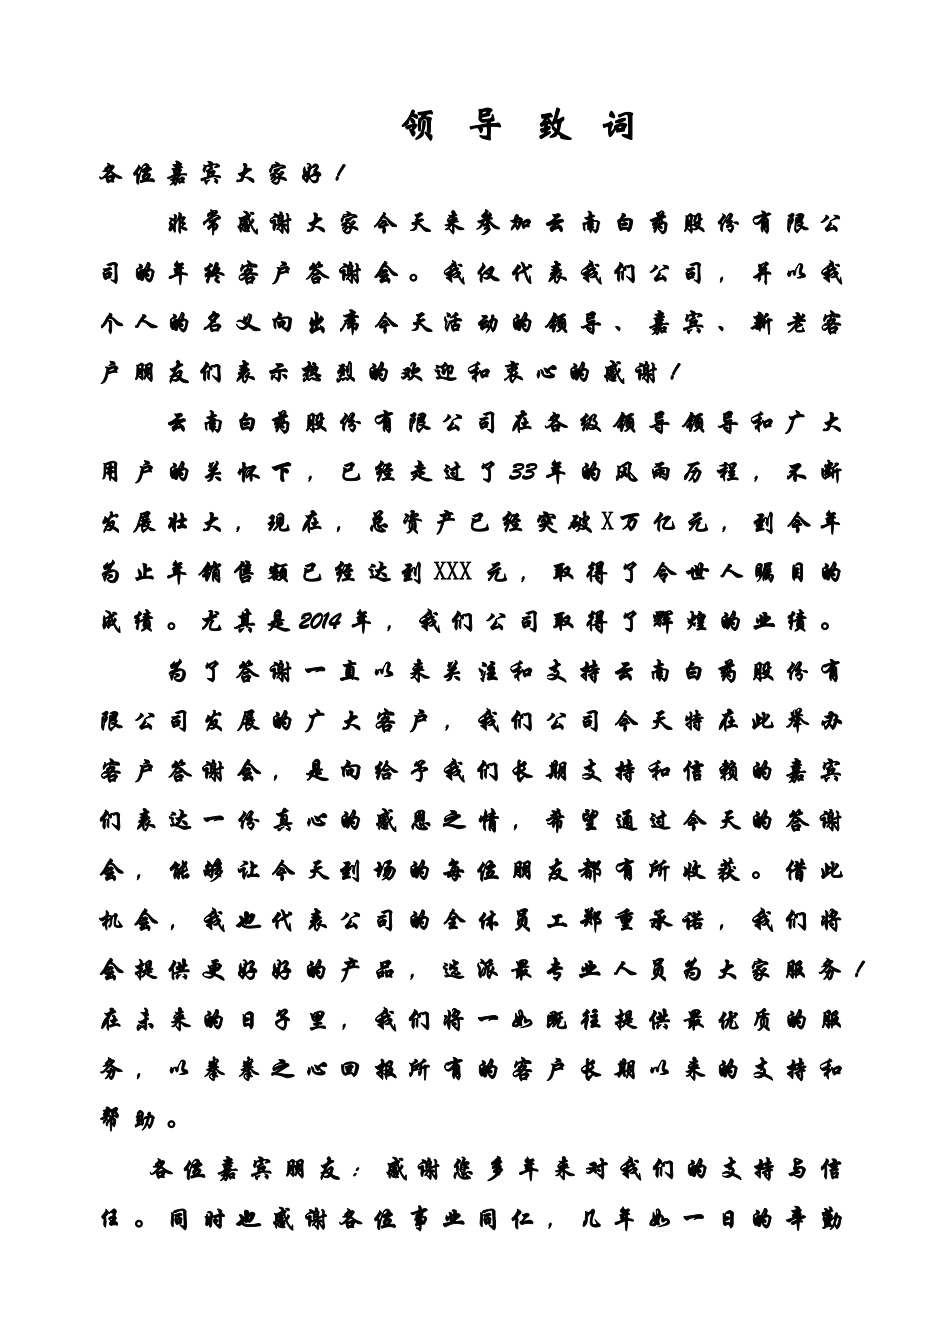 领导致词
各位嘉宾大家好！
非常感谢大家今天来参加云南白药股份有限公
司的年终客户答谢会。我仅代表我们公司，并以我
个人的名义向出席今天活动的领导、嘉宾、新老客
户朋友们表示热烈的欢迎和衷心的感谢！
云南白药股份有限公司在各级领导领导和广大
用户的关怀下，已经走过了33年的风雨历程，不断
发展壮大，现在，总资产已经突破X万亿元，到今年
为止年销售额已经达到XXX元，取得了令世人瞩目的
成绩。尤其是2014年，我们公司取得了辉煌的业绩。
为了答谢一直以来关注和支持云南白药股份有
限公司发展的广大客户，我们公司今天特在此举办
客户答谢会，是向给予我们长期支持和信赖的嘉宾
们表达一份真心的感恩之情，希望通过今天的答谢
会，能够让今天到场的每位朋友都有所收获。借此
机会，我也代表公司的全体员工郑重承诺，我们将
会提供更好好的产品，选派最专业人员为大家服务！
在未来的日子里，我们将一如既往提供最优质的服
务，以拳拳之心回报所有的客户长期以来的支持和
帮助。
各位嘉宾朋友：感谢您多年来对我们的支持与信
任。同时也感谢各位事业同仁，几年如一日的辛勤